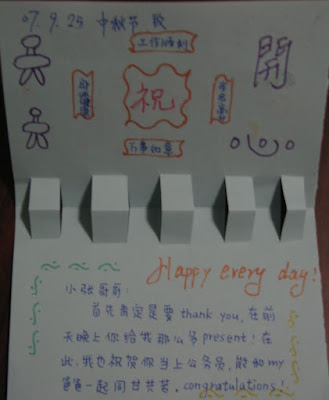 07.9.25 中秋节
工作顺利
開
祝
万事如意
Happy every day!
小张哥哥:
首先肯定是要 thank you, 在前
天晚上你给我那么多 present! 在
此, 我也祝贺你当上公务员, 能和 my
爸爸一起同甘共苦. congratulations!